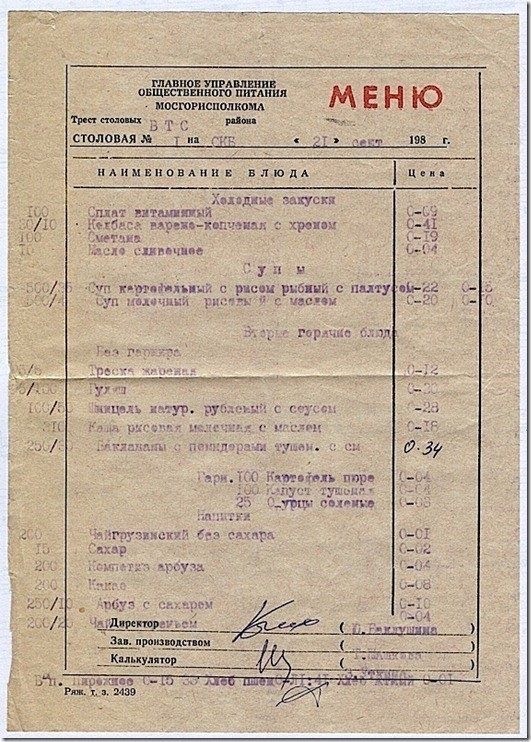 ГЛАВНОЕ УПРАВЛЕНИЕ
ОБЩЕСТВЕННОГО ПИТАНИЯ
МОСГОРИСПОЛКОМА
МЕНЮ
Трест столовых ВТС района
СТОЛОВАЯ № 1 на СКБ « 21 » сент 198 г.
НАИМЕНОВАНИЕ БЛЮДА Цена
Холодные закуски
100 Сплат витаминный 0-09
50/10 Колбаса варено-копченая с хреном 0-41
100 Сметана 0-19
10 Масло сливочнее 0-04
Супы
500/35 Суп картофельный с рисом рыбный с палтусом 0-22
500/4 Суп молечный рисовый с маслом 0-20 0-10
Вторые горячие блюда
Без гарнира
Треска жареная 0-12
Гуляш 0-30
100/50 Шницель натур. рубленый с соусом -28
310 Каша рисовая молечная с маслом 0-18
250/30 Баклажаны с помидорами тушен. с см 0.34
Гарн. 100 Картофель пюре 0-04
100 Капуст тушеная 0-04
25 О урцы соленые 0-03
Напитки
200 Чайгрузинский без сахара 0-01
15 Сахар 0-02
200 Компетиз арбуза 0-04
200 Какао 0-08
250/10 Арбуз с сахарем 0-10
200/20 Чай 0-04
Директор ( Ю. Баклушина )
Зав. производством ( )
Калькулятор ( )
В п. Пирожнее 0-15 Хлеб 0-01
Ряж. т. з. 2439